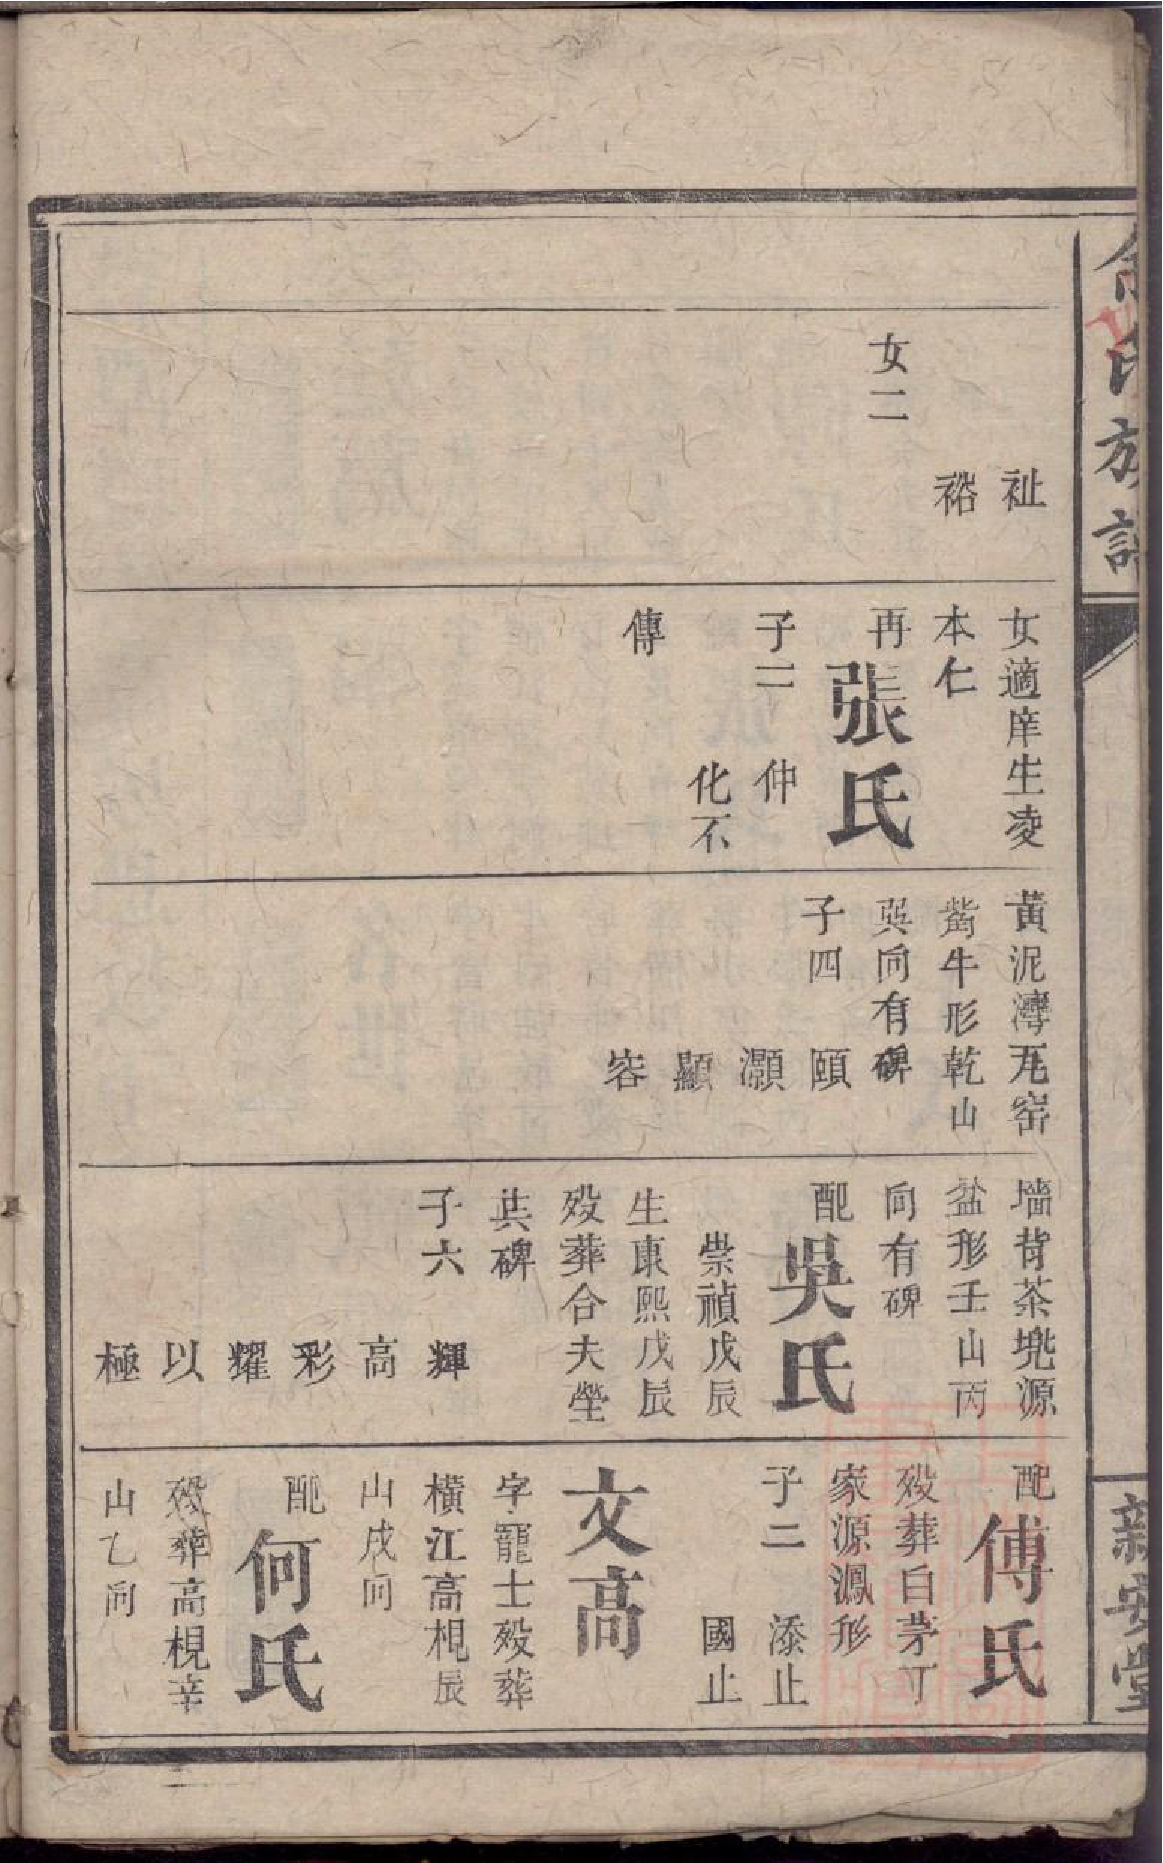 氏族譜
新安堂
祉
裕
女二
女適庠生凌
本仁
再張氏
子二 仲
化不
傳
黃泥灣瓦窑
犁牛形乾山
巽向有碑
子四 頤
灝
顯
容
墻背茶垗源
盆形壬山丙
向有碑
配吳氏
崇禎戊辰
生康熙戊辰
殁葬合夫塋
共碑
子六 輝
高
彩
耀
以
極
配傅氏
殁葬白茅丁
家源鳳形
子二 添止
國止
文高
字龍士殁葬
橫江高梘辰
山戌向
配何氏
殁葬高梘辛
山乙向